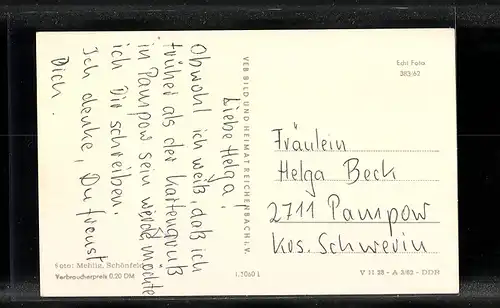 Liebe Helga!
Obwohl ich weiß, daß ich
früher als der Kartengruß
in Pampow sein werde, möchte
ich Dir schreiben.
Ich denke, Du freust
Dich.
VEB BILD UND HEIMAT REICHENBACH i. V.
Echt Foto
383/62
Fräulein
Helga Beck
2711 Pampow
Krs. Schwerin
Foto: Mehlig, Schönfeld
Verbraucherpreis 0,20 DM
V 11 28 - A 3/62 - DDR